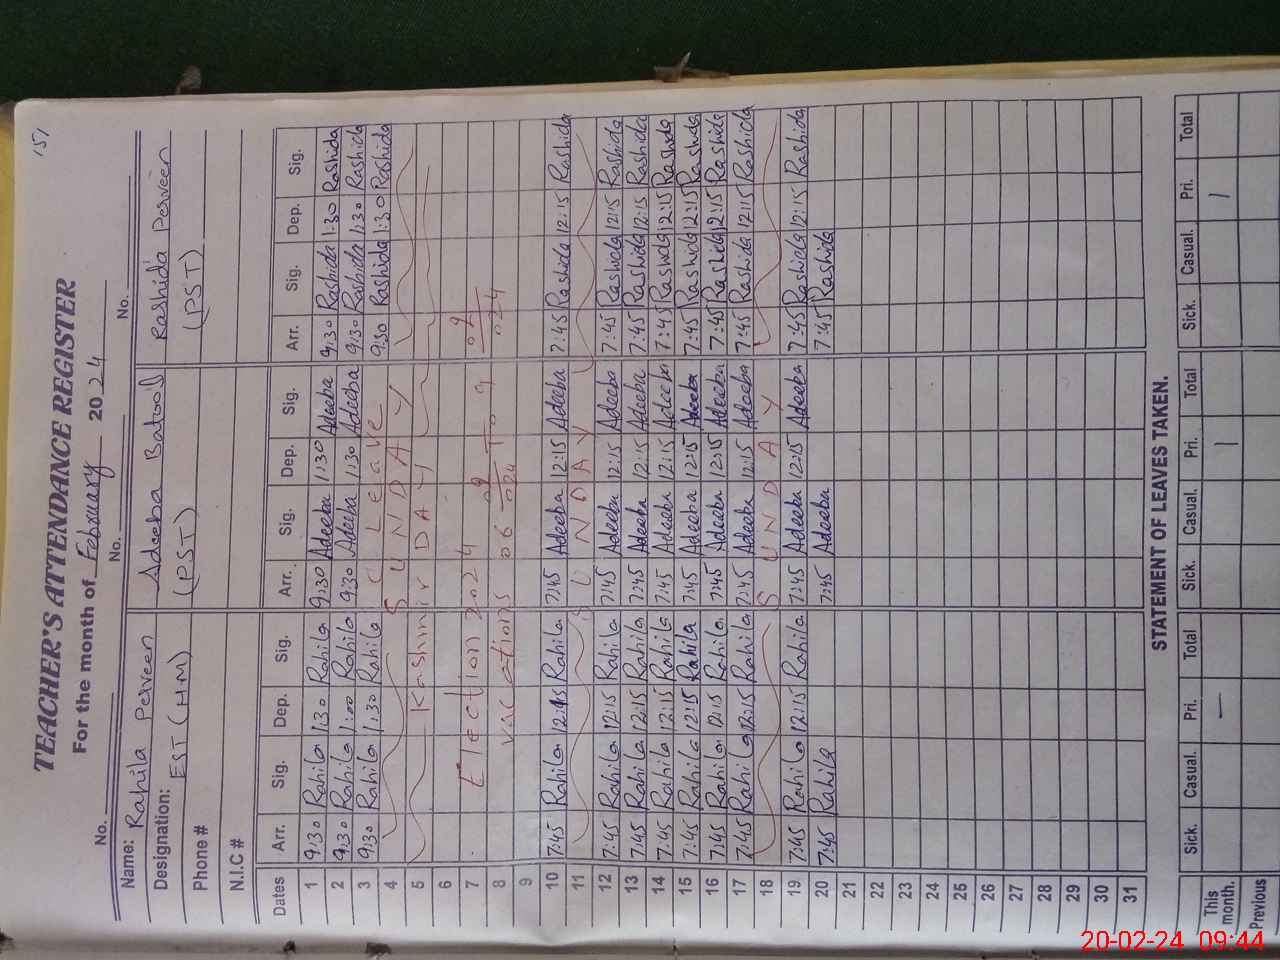 151
TEACHER'S ATTENDANCE REGISTER
For the month of February 2024
No. No. No.
Name: Rahila Perveen Adeeba Batool Rashida Perveen
Designation: EST (HM) (PST) (PST)
Phone #
N.I.C #
Dates Arr. Sig. Dep. Sig. Arr. Sig. Dep. Sig. Arr. Sig. Dep. Sig.
1 9:30 Rahila 1:30 Rahila 9:30 Adeeba 1:30 Adeeba 9:30 Rashida 1:30 Rashida
2 9:30 Rahila 1:00 Rahila 9:30 Adeeba 1:30 Adeeba 9:30 Rashida 1:30 Rashida
3 9:30 Rahila 1:30 Rahila C Leave 9:30 Rashida 1:30 Rashida
4 SUNDAY
5 Kashmir DAY
6
7 Election 2024 02 024
8 vacations 06 02 024 To 9
9
10 7:45 Rahila 12:15 Rahila 7:45 Adeeba 12:15 Adeeba 7:45 Rashida 12:15 Rashida
11 SUNDAY
12 7:45 Rahila 12:15 Rahila 7:45 Adeeba 12:15 Adeeba 7:45 Rashida 12:15 Rashida
13 7:45 Rahila 12:15 Rahila 7:45 Adeeba 12:15 Adeeba 7:45 Rashida 12:15 Rashida
14 7:45 Rahila 12:15 Rahila 7:45 Adeeba 12:15 Adeeba 7:45 Rashida 12:15 Rashida
15 7:45 Rahila 12:15 Rahila 7:45 Adeeba 12:15 Adeeba 7:45 Rashida 12:15 Rashida
16 7:45 Rahila 12:15 Rahila 7:45 Adeeba 12:15 Adeeba 7:45 Rashida 12:15 Rashida
17 7:45 Rahila 12:15 Rahila 7:45 Adeeba 12:15 Adeeba 7:45 Rashida 12:15 Rashida
18 SUNDAY
19 7:45 Rahila 12:15 Rahila 7:45 Adeeba 12:15 Adeeba 7:45 Rashida 12:15 Rashida
20 7:45 Rahila 7:45 Adeeba 7:45 Rashida
21
22
23
24
25
26
27
28
29
30
31
STATEMENT OF LEAVES TAKEN.
Sick. Casual. Pri. Total Sick. Casual. Pri. Total Sick. Casual. Pri. Total
This month. — — —
Previous
20-02-24 09:44